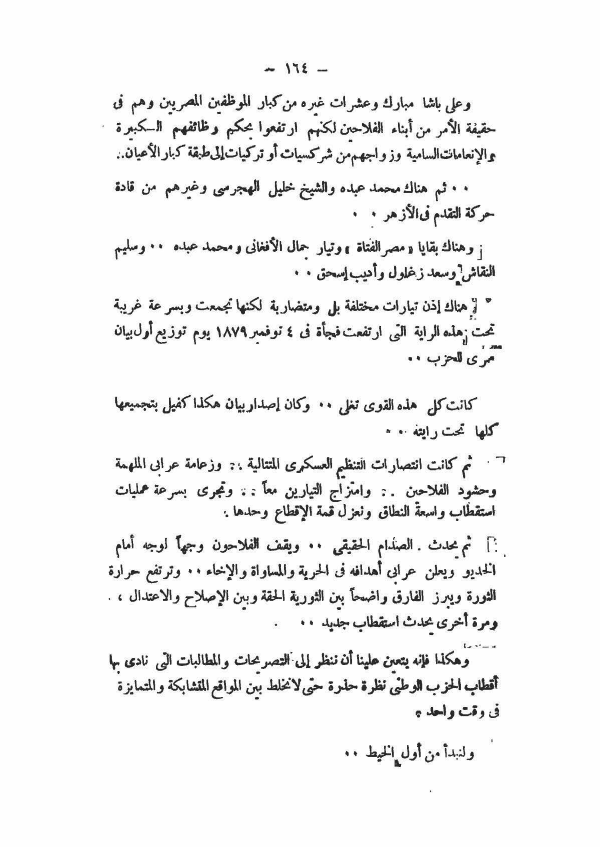 – ١٦٤ –
وعلى باشا مبارك وعشرات غيره من كبار الموظفين المصريين وهم فى
حقيقة الأمر من أبناء الفلاحين لكنهم ارتفعوا بحكم وظائفهم الكبيرة
والإنعامات السامية وزواجهم من شركسيات أو تركيات إلى طبقة كبار الأعيان..
٠٠ ثم هناك محمد عبده والشيخ خليل الهجرسى وغيرهم من قادة
حركة التقدم فى الأزهر ٠ ٠
وهناك بقايا «مصر الفتاة» وتيار جمال الأفغانى ومحمد عبده ٠٠ وسليم
النقاش وسعد زغلول وأديب إسحق ٠٠
هناك إذن تيارات مختلفة بل ومتضاربة لكنها تجمعت وبسرعة غريبة
تحت هذه الراية التى ارتفعت فجأة فى ٤ نوفمبر ١٨٧٩ يوم توزيع أول بيان
سرى للحزب ٠٠
كانت كل هذه القوى تغلى ٠٠ وكان إصدار بيان هكذا كفيل بتجميعها
كلها تحت رايته ٠٠
ثم كانت انتصارات التنظيم العسكرى المتتالية .. وزعامة عرابى الملهمة
وحشود الفلاحين .. وامتزاج التيارين معاً .. وتجرى بسرعة عمليات
استقطاب واسعة النطاق وتعزل قمة الإقطاع وحدها .
ثم يحدث الصدام الحقيقى ٠٠ ويقف الفلاحون وجهاً لوجه أمام
الخديو ويعلن عرابى أهدافه فى الحرية والمساواة والإخاء ٠٠ وترتفع حرارة
الثورة ويبرز الفارق واضحاً بين الثورية الحقة وبين الإصلاح والاعتدال ،
ومرة أخرى يحدث استقطاب جديد ٠٠
وهكذا فإنه يتعين علينا أن ننظر إلى التصريحات والمطالبات التى نادى بها
أقطاب الحزب الوطنى نظرة حذرة حتى لا نخلط بين المواقع المتشابكة والمتمايزة
فى وقت واحد .
ولنبدأ من أول الخيط ٠٠